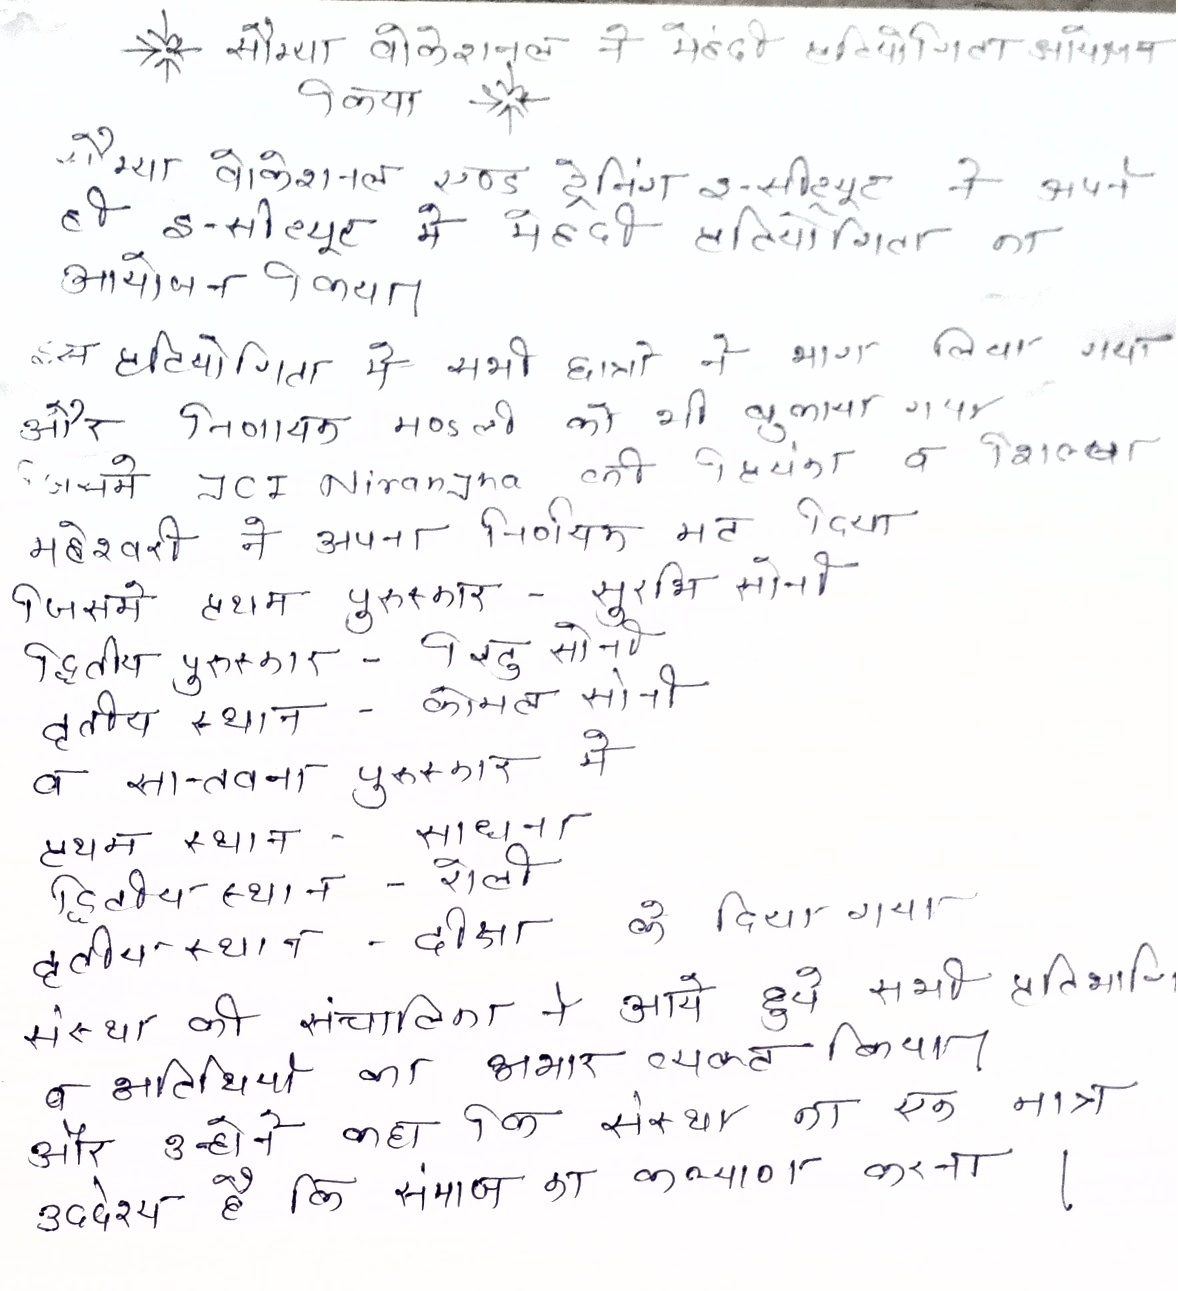 सौम्या वोकेशनल ने मेहंदी प्रतियोगिता आयोजन
किया
सौम्या वोकेशनल एण्ड ट्रेनिंग इन्सीट्यूट ने अपने
ही इन्सीट्यूट में मेहदी प्रतियोगिता का
आयोजन किया।
इस प्रतियोगिता में सभी छात्रो ने भाग लिया गया
और निणायक मण्डली को भी बुलाया गया
जिसमे JCI Niranjna की प्रियंका व शिल्पा
महेश्वरी ने अपना निर्णायक मत दिया
जिसमे प्रथम पुरुस्कार - सुरभि सोनी
द्वितीय पुरुस्कार - सोनी
तृतीय स्थान - कोमल सोनी
व सान्तवना पुरुस्कार में
प्रथम स्थान - साधना
द्वितीय स्थान - रोली
तृतीय स्थान - दीक्षा के दिया गया
संस्था की संचालिका ने आये हुये सभी प्रतिभागि
व अतिथियो का अभार व्यक्त किया।
और उन्होने कहा कि संस्था का एक मात्र
उददेश्य है कि संमाज का कल्याण करना ।